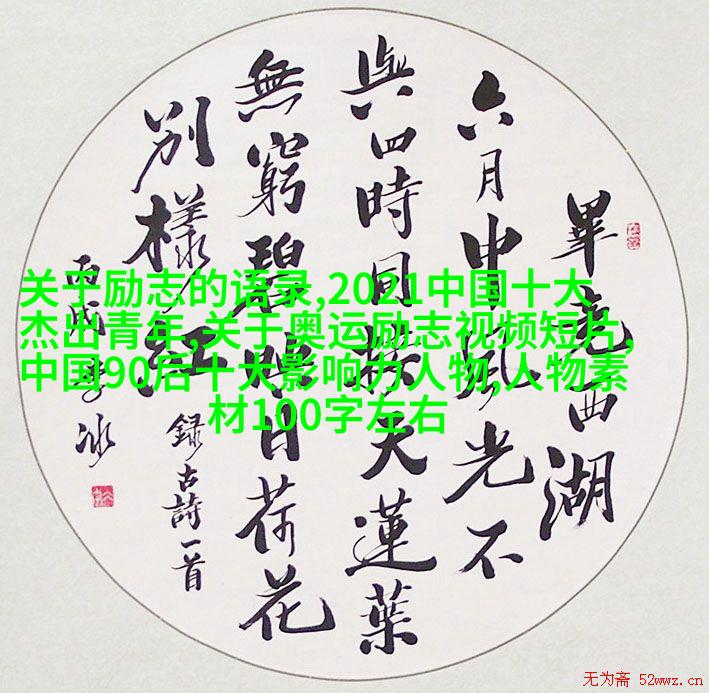 畢竟西湖
六月中風光不
與四時同接天蓮葉
無窮碧映日荷花
別樣紅
錄古詩一首
丙戌 冰
关于励志的语录,2021中国十大
杰出青年,关于奥运励志视频短片,
中国90后十大影响力人物,人物素
材100字左右
无为斋 52wwz.cn